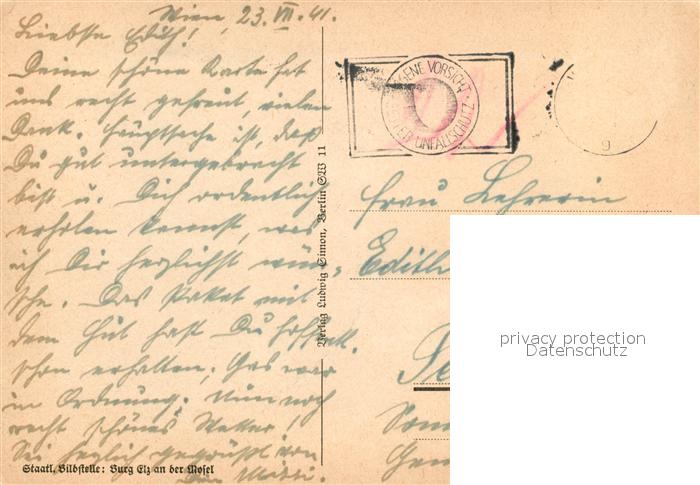 Wien, 23. VII. 41.
Liebste Edith!
Deine schöne Karte hat
uns recht gefreut, vielen
Dank. Hauptsache ist, daß
Du gut untergebracht
bist u. Dich ordentlich
erholen kannst, was
ich Dir herzlichst wün-
sche. Das Paket mit
dem Hut hast Du hoffentl.
schon erhalten; Gas war
in Ordnung. Nun noch
recht schönes Wetter!
Sei herzlich gegrüßt von
Staatl. Bildstelle: Burg Elz an der Mosel
Verlag Ludwig Simon, Berlin SW 11
EIGENE VORSICHT
UNFALLSCHUTZ
Frau Lehrerin
Edith
privacy protection
Datenschutz